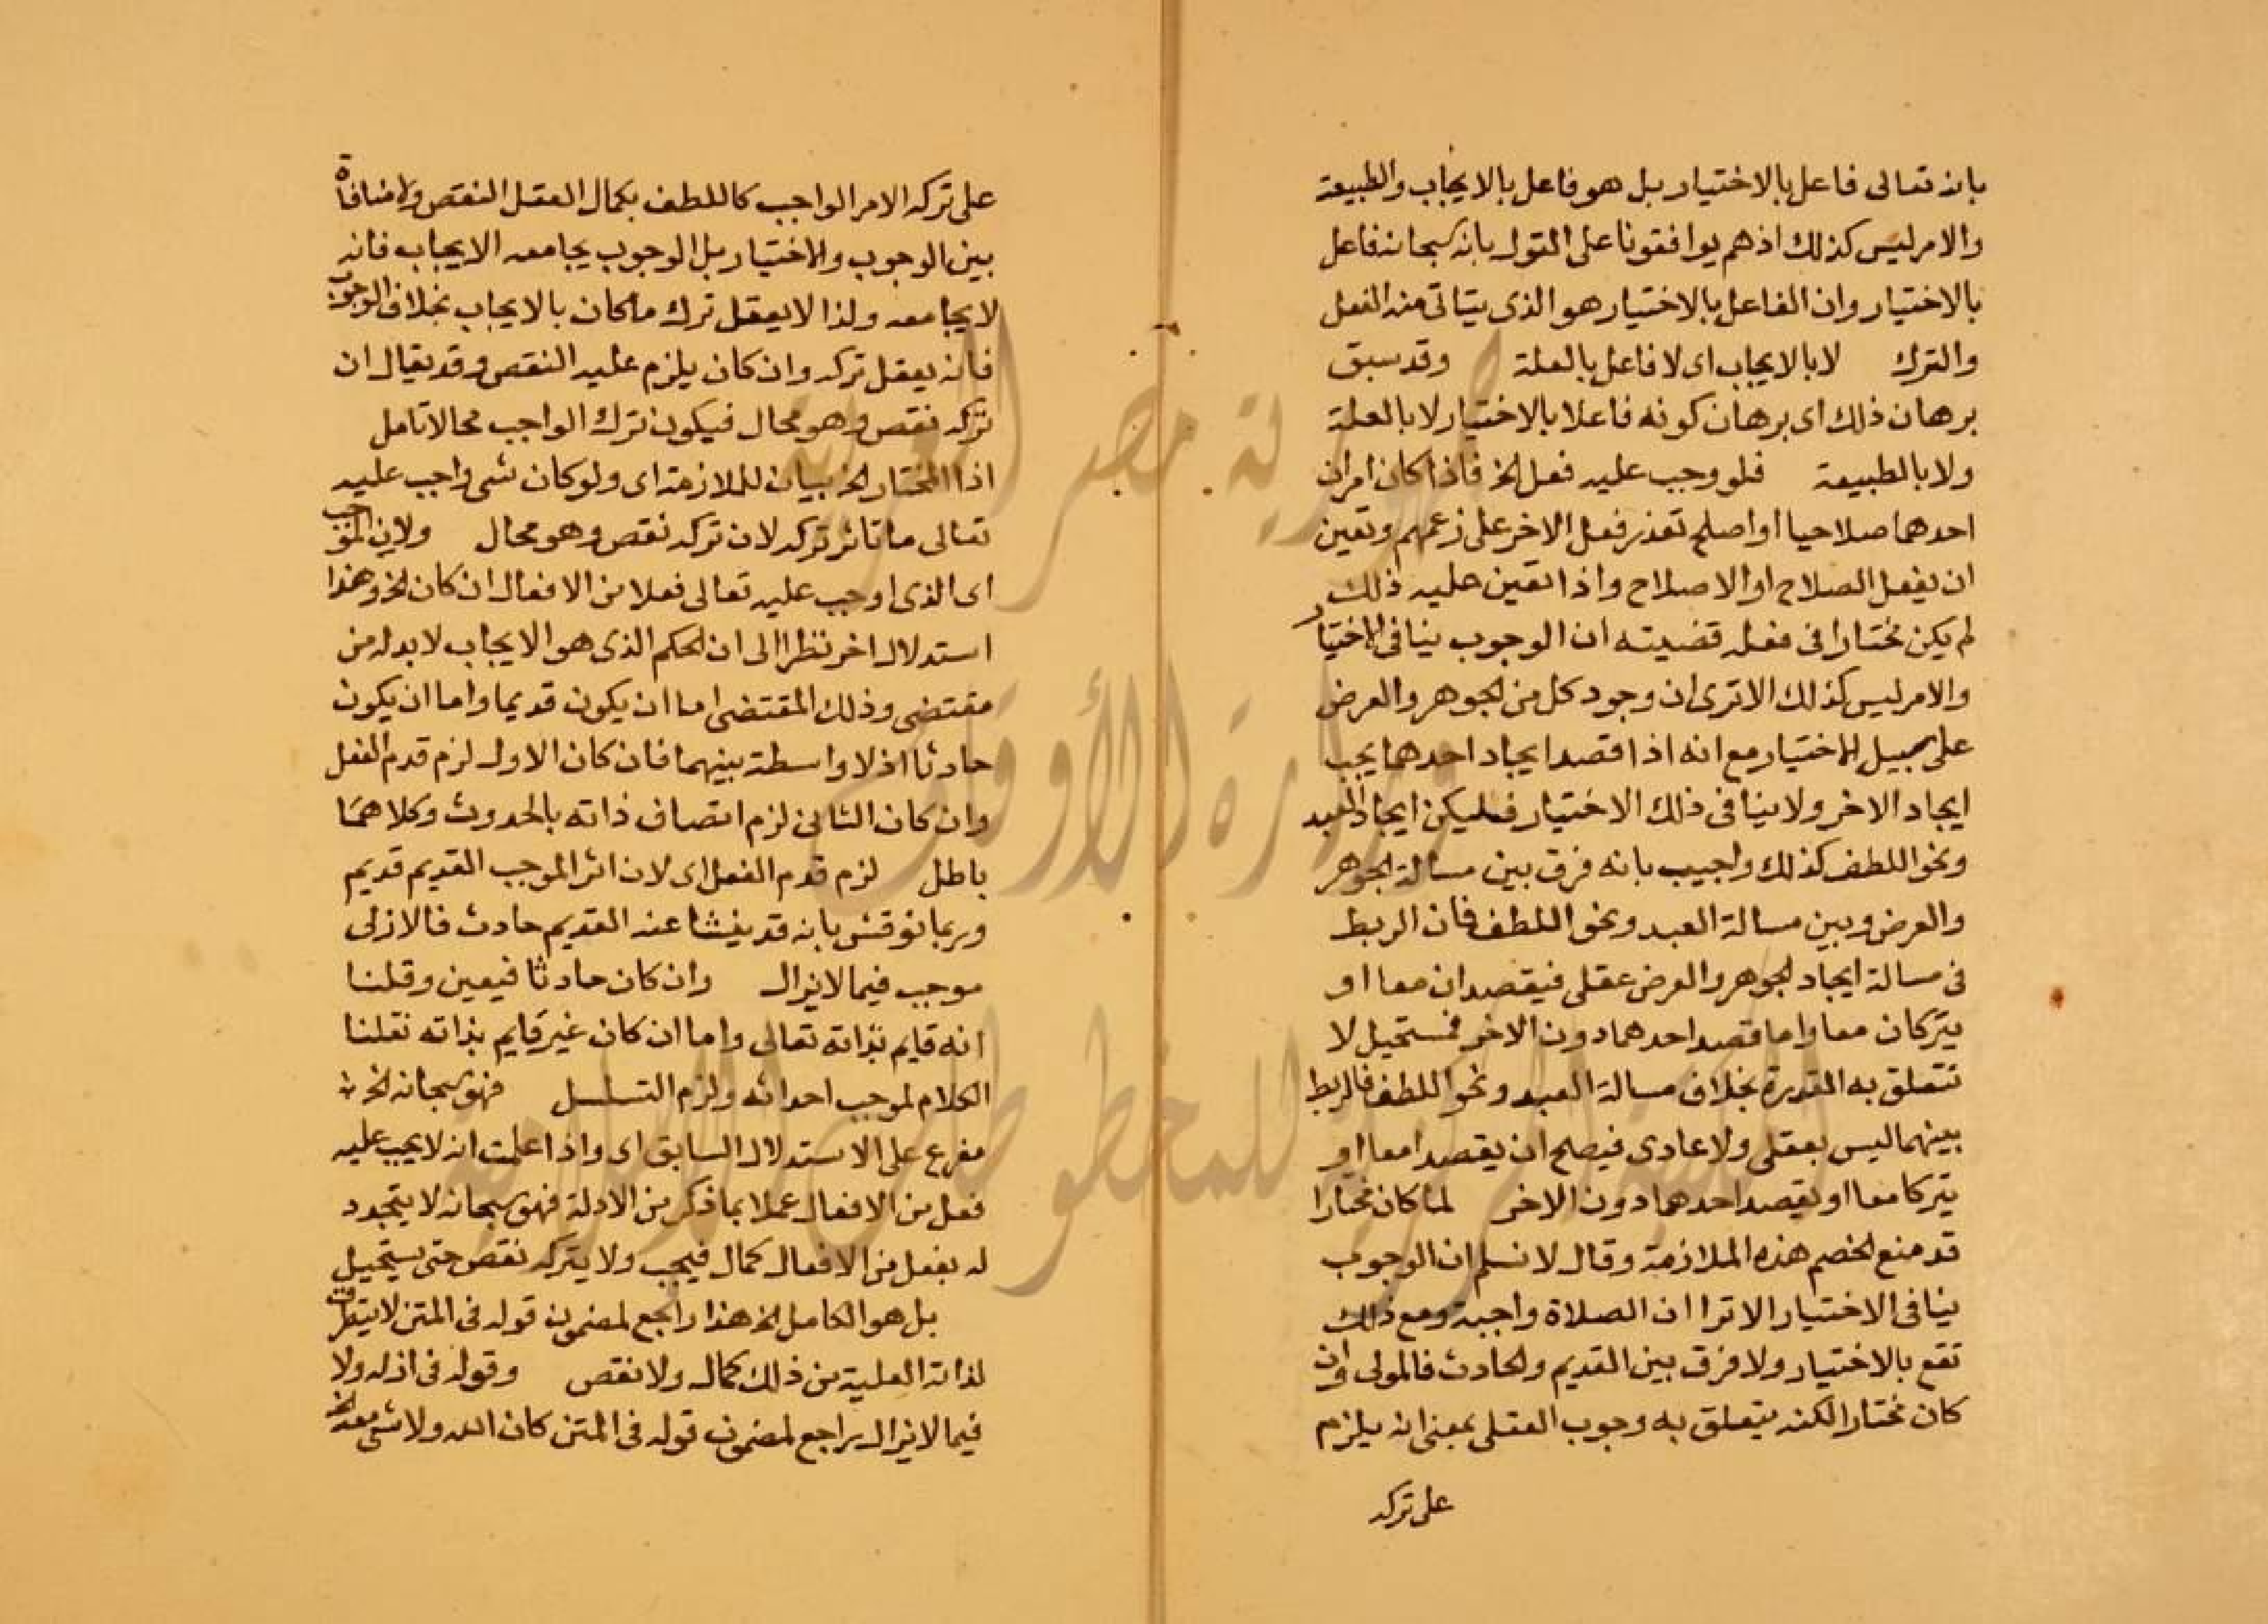 بانه تعالى فاعل بالاختيار بل هو فاعل بالايجاب والطبيعة
والامر ليس كذلك اذ هم يوافقونا على القول بانه سبحانه فاعل
بالاختيار وان الفاعل بالاختيار هو الذى يتاتى منه الفعل
والترك لا بالايجاب اى لا فاعل بالعلة وقد سبق
برهان ذلك اى برهان كونه فاعلا بالاختيار لا بالعلة
ولا بالطبيعة فلو وجب عليه فعل الخ فاذا كان امران
احدهما صلاحيا او اصلح تعذر فعل الاخر على زعمهم وتعين
ان يفعل الصلاح او الاصلاح واذا تعين عليه ذلك
لم يكن مختارا فى فعله قضيته ان الوجوب ينافى الاختيار
والامر ليس كذلك الا ترى ان وجود كل من الجوهر والعرض
على سبيل الاختيار مع انه اذا قصد ايجاد احدهما يجب
ايجاد الاخر ولا ينافى ذلك الاختيار فليكن ايجاد العبد
ونحو اللطف كذلك واجيب بانه فرق بين مسالة الجوهر
والعرض وبين مسالة العبد ونحو اللطف فان الربط
فى مسالة ايجاد الجوهر والعرض عقلى فيقصدان معا او
يتركان معا واما قصد احدهما دون الاخر فمستحيل لا
تتعلق به القدرة بخلاف مسالة العبد ونحو اللطف فالربط
بينهما ليس بعقلى ولا عادى فيصلح ان يقصدا معا او
يتركا معا او يقصد احدهما دون الاخر لما كان مختارا
قد منع الخصم هذه الملازمة وقال لا نسلم ان الوجوب
ينافى الاختيار الا ترا ان الصلاة واجبة ومع ذلك
تقع بالاختيار ولا فرق بين القديم والحادث فالمولى وان
كان مختارا لكنه يتعلق به وجوب العقلى بمعنى انه يلزم
على تركه
على تركه الامر الواجب كاللطف بكمال العقل النقص ولا منافاة
بين الوجوب والاختيار بل الوجوب يجامعه الايجاب فانه
لا يجامعه ولذا لا يعقل ترك ما كان بالايجاب بخلاف الوجوب
فانه يعقل تركه وان كان يلزم عليه النقص وقد يقال ان
تركه نقص وهو محال فيكون ترك الواجب محالا تامل
اذا المختار الخ بيان للملازمة اى ولو كان شى واجب عليه
تعالى ما تاثر تركه لان تركه نقص وهو محال ولان الموجب
اى الذى اوجب عليه تعالى فعلا من الافعال ان كان الخ وهذا
استدلال اخر نظرا الى ان الحكم الذى هو الايجاب لا بد له من
مقتضى وذلك المقتضى اما ان يكون قديما واما ان يكون
حادثا اذ لا واسطة بينهما فان كان الاول لزم قدم الفعل
وان كان الثانى لزم اتصاف ذاته بالحدوث وكلاهما
باطل لزم قدم الفعل اى لان اثر الموجب القديم قديم
وربما نوقش بانه قد ينشا عنه القديم حادث فالازلى
موجب فيما لا يزال وان كان حادثا فيعين وقلنا
انه قايم بذاته تعالى واما ان كان غير قايم بذاته نقلنا
الكلام لموجب احداثه ولزم التسلسل فهو سبحانه الخ
مفرع على الاستدلال السابق اى واذا علمت انه لا يجب عليه
فعل من الافعال عملا بما ذكر من الادلة فهو سبحانه لا يتجدد
له بفعل من الافعال كمال فيجب ولا يتركه نقص حتى يستحيل
بل هو الكامل الخ هذا راجع لمضمون قوله فى المتن لا يتطرق
لذاته العلية من ذلك كمال ولا نقص وقوله فى ازله ولا
فيما لا يزال راجع لمضمون قوله فى المتن كان الله ولا شى معه الخ